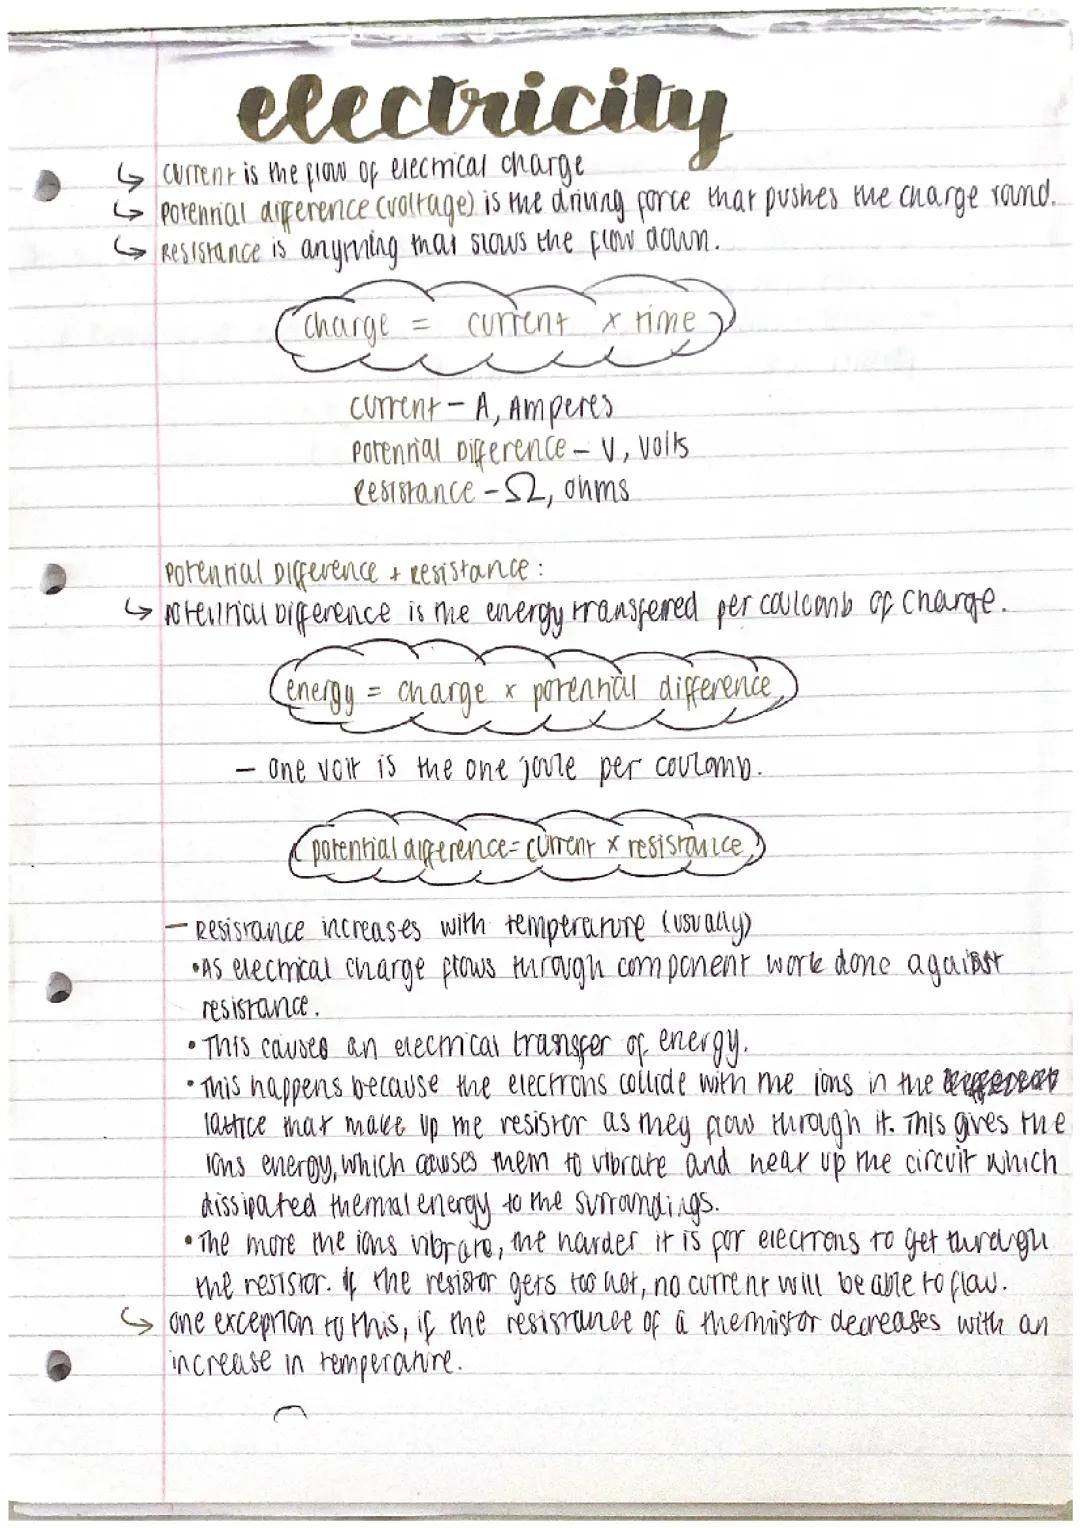 electricity
↳ current is the flow of electrical charge
↳ potential difference (voltage) is the driving force that pushes the charge round.
↳ Resistance is anything that slows the flow down.
charge = current × time
current – A, Amperes
Potential Difference – V, Volts
Resistance – Ω, ohms
Potential Difference + resistance:
↳ potential Difference is the energy transferred per coulomb of charge.
energy = charge × potential difference
– One volt is the one joule per coulomb.
potential difference = current × resistance
– Resistance increases with temperature (usually)
•As electrical charge flows through component work done against
resistance.
• This causes an electrical transfer of energy.
• This happens because the electrons collide with the ions in the
lattice that make up the resistor as they flow through it. This gives the
ions energy, which causes them to vibrate and heat up the circuit which
dissipated thermal energy to the surroundings.
• The more the ions vibrate, the harder it is for electrons to get through
the resistor. If the resistor gets too hot, no current will be able to flow.
↳ One exception to this, if the resistance of a thermistor decreases with an
increase in temperature.